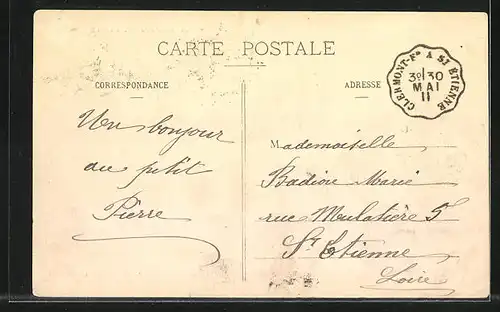 CARTE POSTALE
CORRESPONDANCE
ADRESSE
CLERMONT-Fd A ST ETIENNE
3º/30
MAI
11
Un bonjour
du petit
Pierre
Mademoiselle
Badiou Marie
rue Mulatière 5
St Etienne
Loire